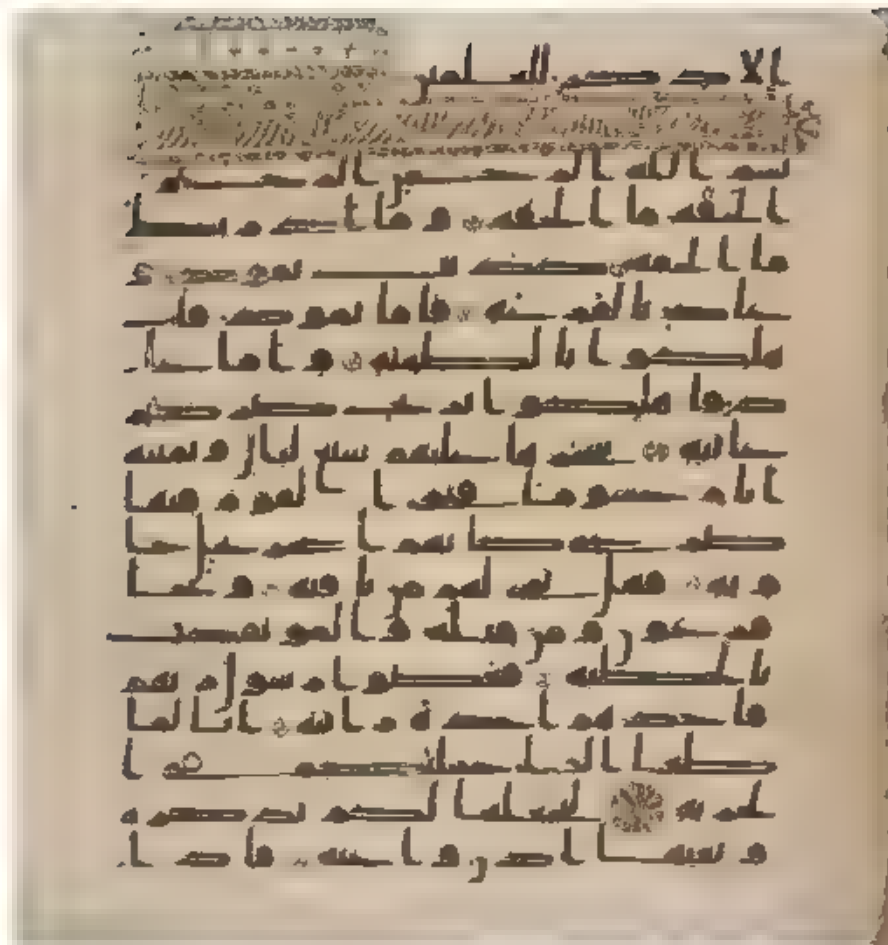 الا ذكر للعلمين
بسم الله الرحمن الرحيم
الحاقة ما الحاقة وما ادريك
ما الحاقة كذبت ثمود و
عاد بالقارعة فاما ثمود فا
هلكوا بالطاغية واما عا
د فاهلكوا بريح صرصر
عاتية سخرها عليهم سبع ليال وثمنية
ايام حسوما فترى القوم فيها
صرعى كانهم اعجاز نخل خا
وية فهل ترى لهم من باقية وجا
فرعون ومن قبله والمؤتفكت
بالخاطئة فعصوا رسول ربهم
فاخذهم اخذة رابية انا لما
طغا الما حملنكم في ا
لجارية لنجعلها لكم تذكرة
وتعيها اذن وعية فاذا